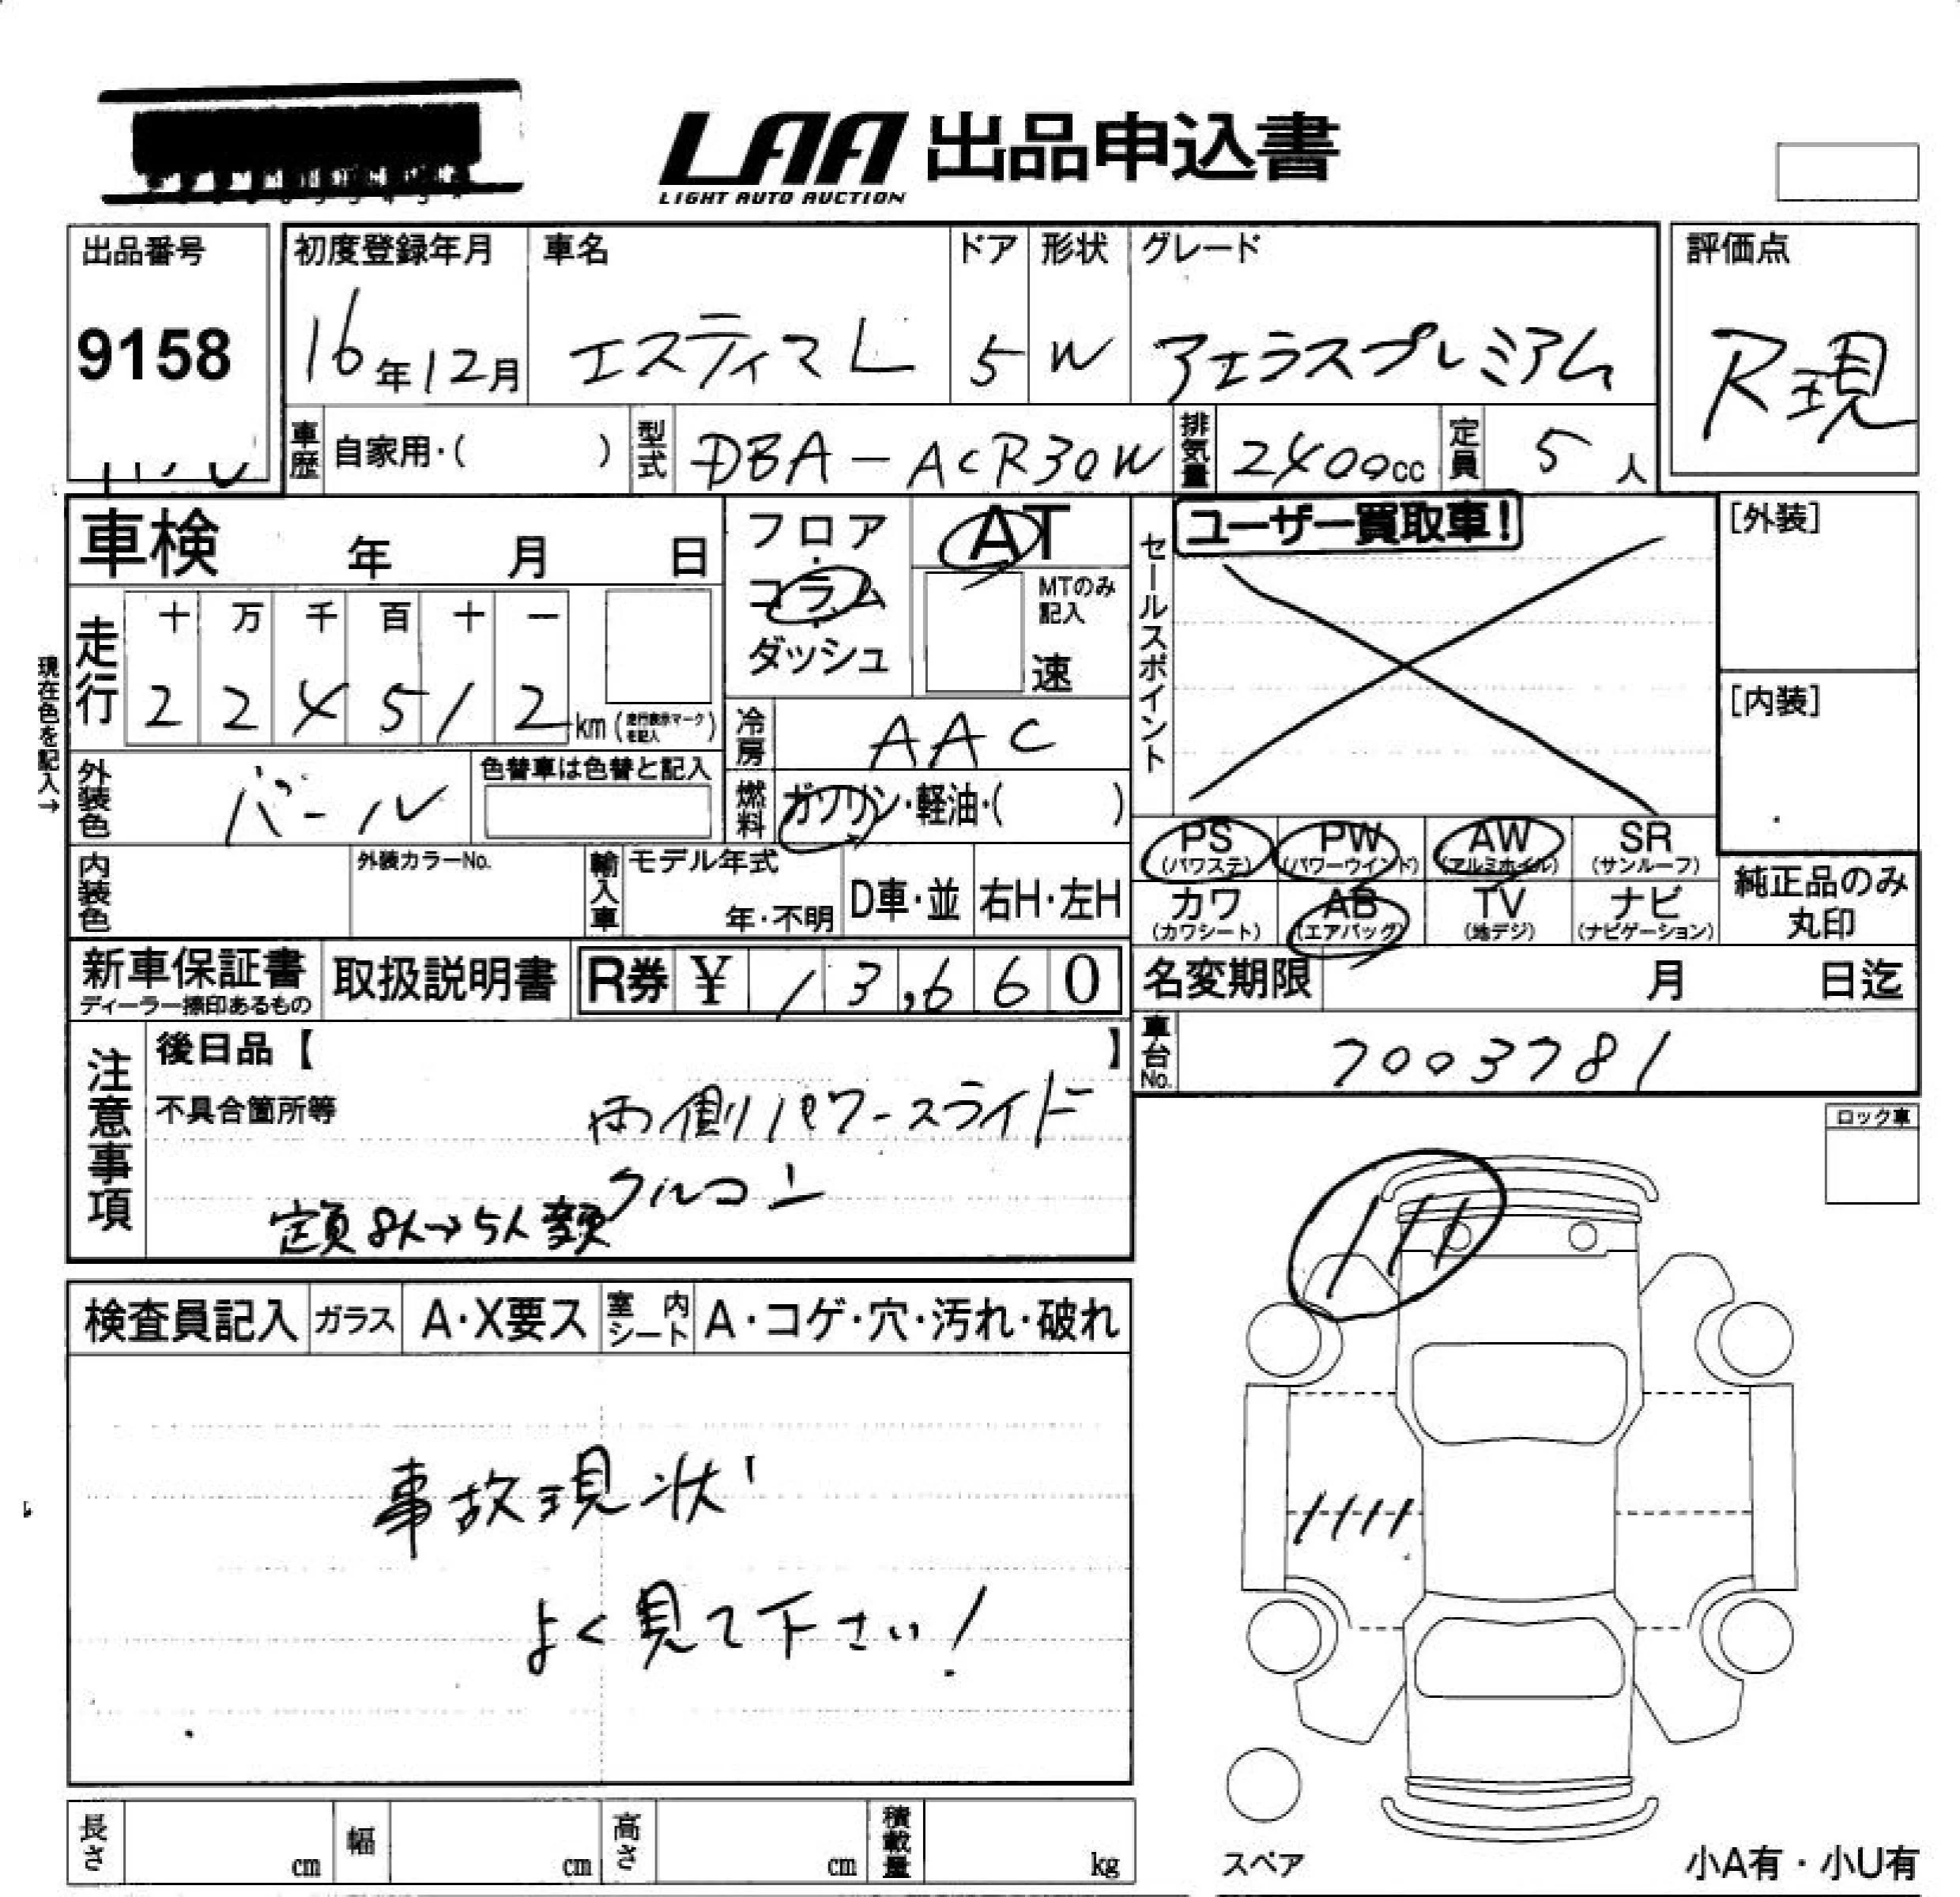 LAA 出品申込書
LIGHT AUTO AUCTION
出品番号
9158
初度登録年月
16年12月
車名
エスティマL
ドア
5
形状
W
グレード
アエラスプレミアム
評価点
R現
車歴 自家用・( )
型式 DBA-ACR30W
排気量 2400cc
定員 5人
車検 年 月 日
走行
十 万 千 百 十 一
2 2 4 5 1 2 km (走行表示マークを記入)
現在色を記入→
外装色 パール
色替車は色替と記入
フロア・コラム・ダッシュ
AT
MTのみ記入
速
冷房 AAC
燃料 ガソリン・軽油・( )
セールスポイント
ユーザー買取車!
[外装]
[内装]
PS (パワステ)
PW (パワーウインド)
AW (アルミホイル)
SR (サンルーフ)
カワ (カワシート)
AB (エアバッグ)
TV (地デジ)
ナビ (ナビゲーション)
純正品のみ丸印
内装色
外装カラーNo.
輸入車
モデル年式
年・不明
D車・並
右H・左H
新車保証書
ディーラー捺印あるもの
取扱説明書
R券 ¥ 13,660
名変期限 月 日迄
車台No. 7003781
注意事項
後日品【 】
不具合箇所等
両側パワースライド
クルコン
定員8人→5人
ロック車
検査員記入
ガラス A・X要ス
室内シート A・コゲ・穴・汚れ・破れ
事故現状
よく見て下さい!
長さ cm
幅 cm
高さ cm
積載量 kg
スペア
小A有・小U有